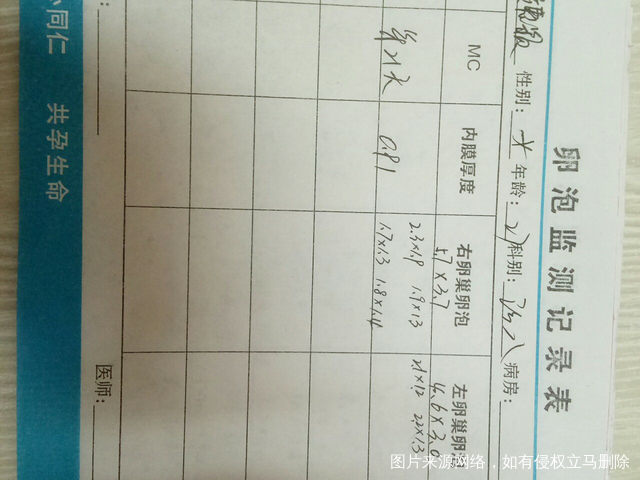 卵泡监测记录表
性别：女 年龄：27 科别： 病房：
MC 内膜厚度 右卵巢卵泡 左卵巢卵泡
5.7×3.7 4.6×3.0
2.3×1.9 1.9×1.3 2.2×1.3
第21天 0.91 1.7×1.3 1.8×1.4 2.1×1.2
医师：
同仁 共孕生命
图片来源网络，如有侵权立马删除